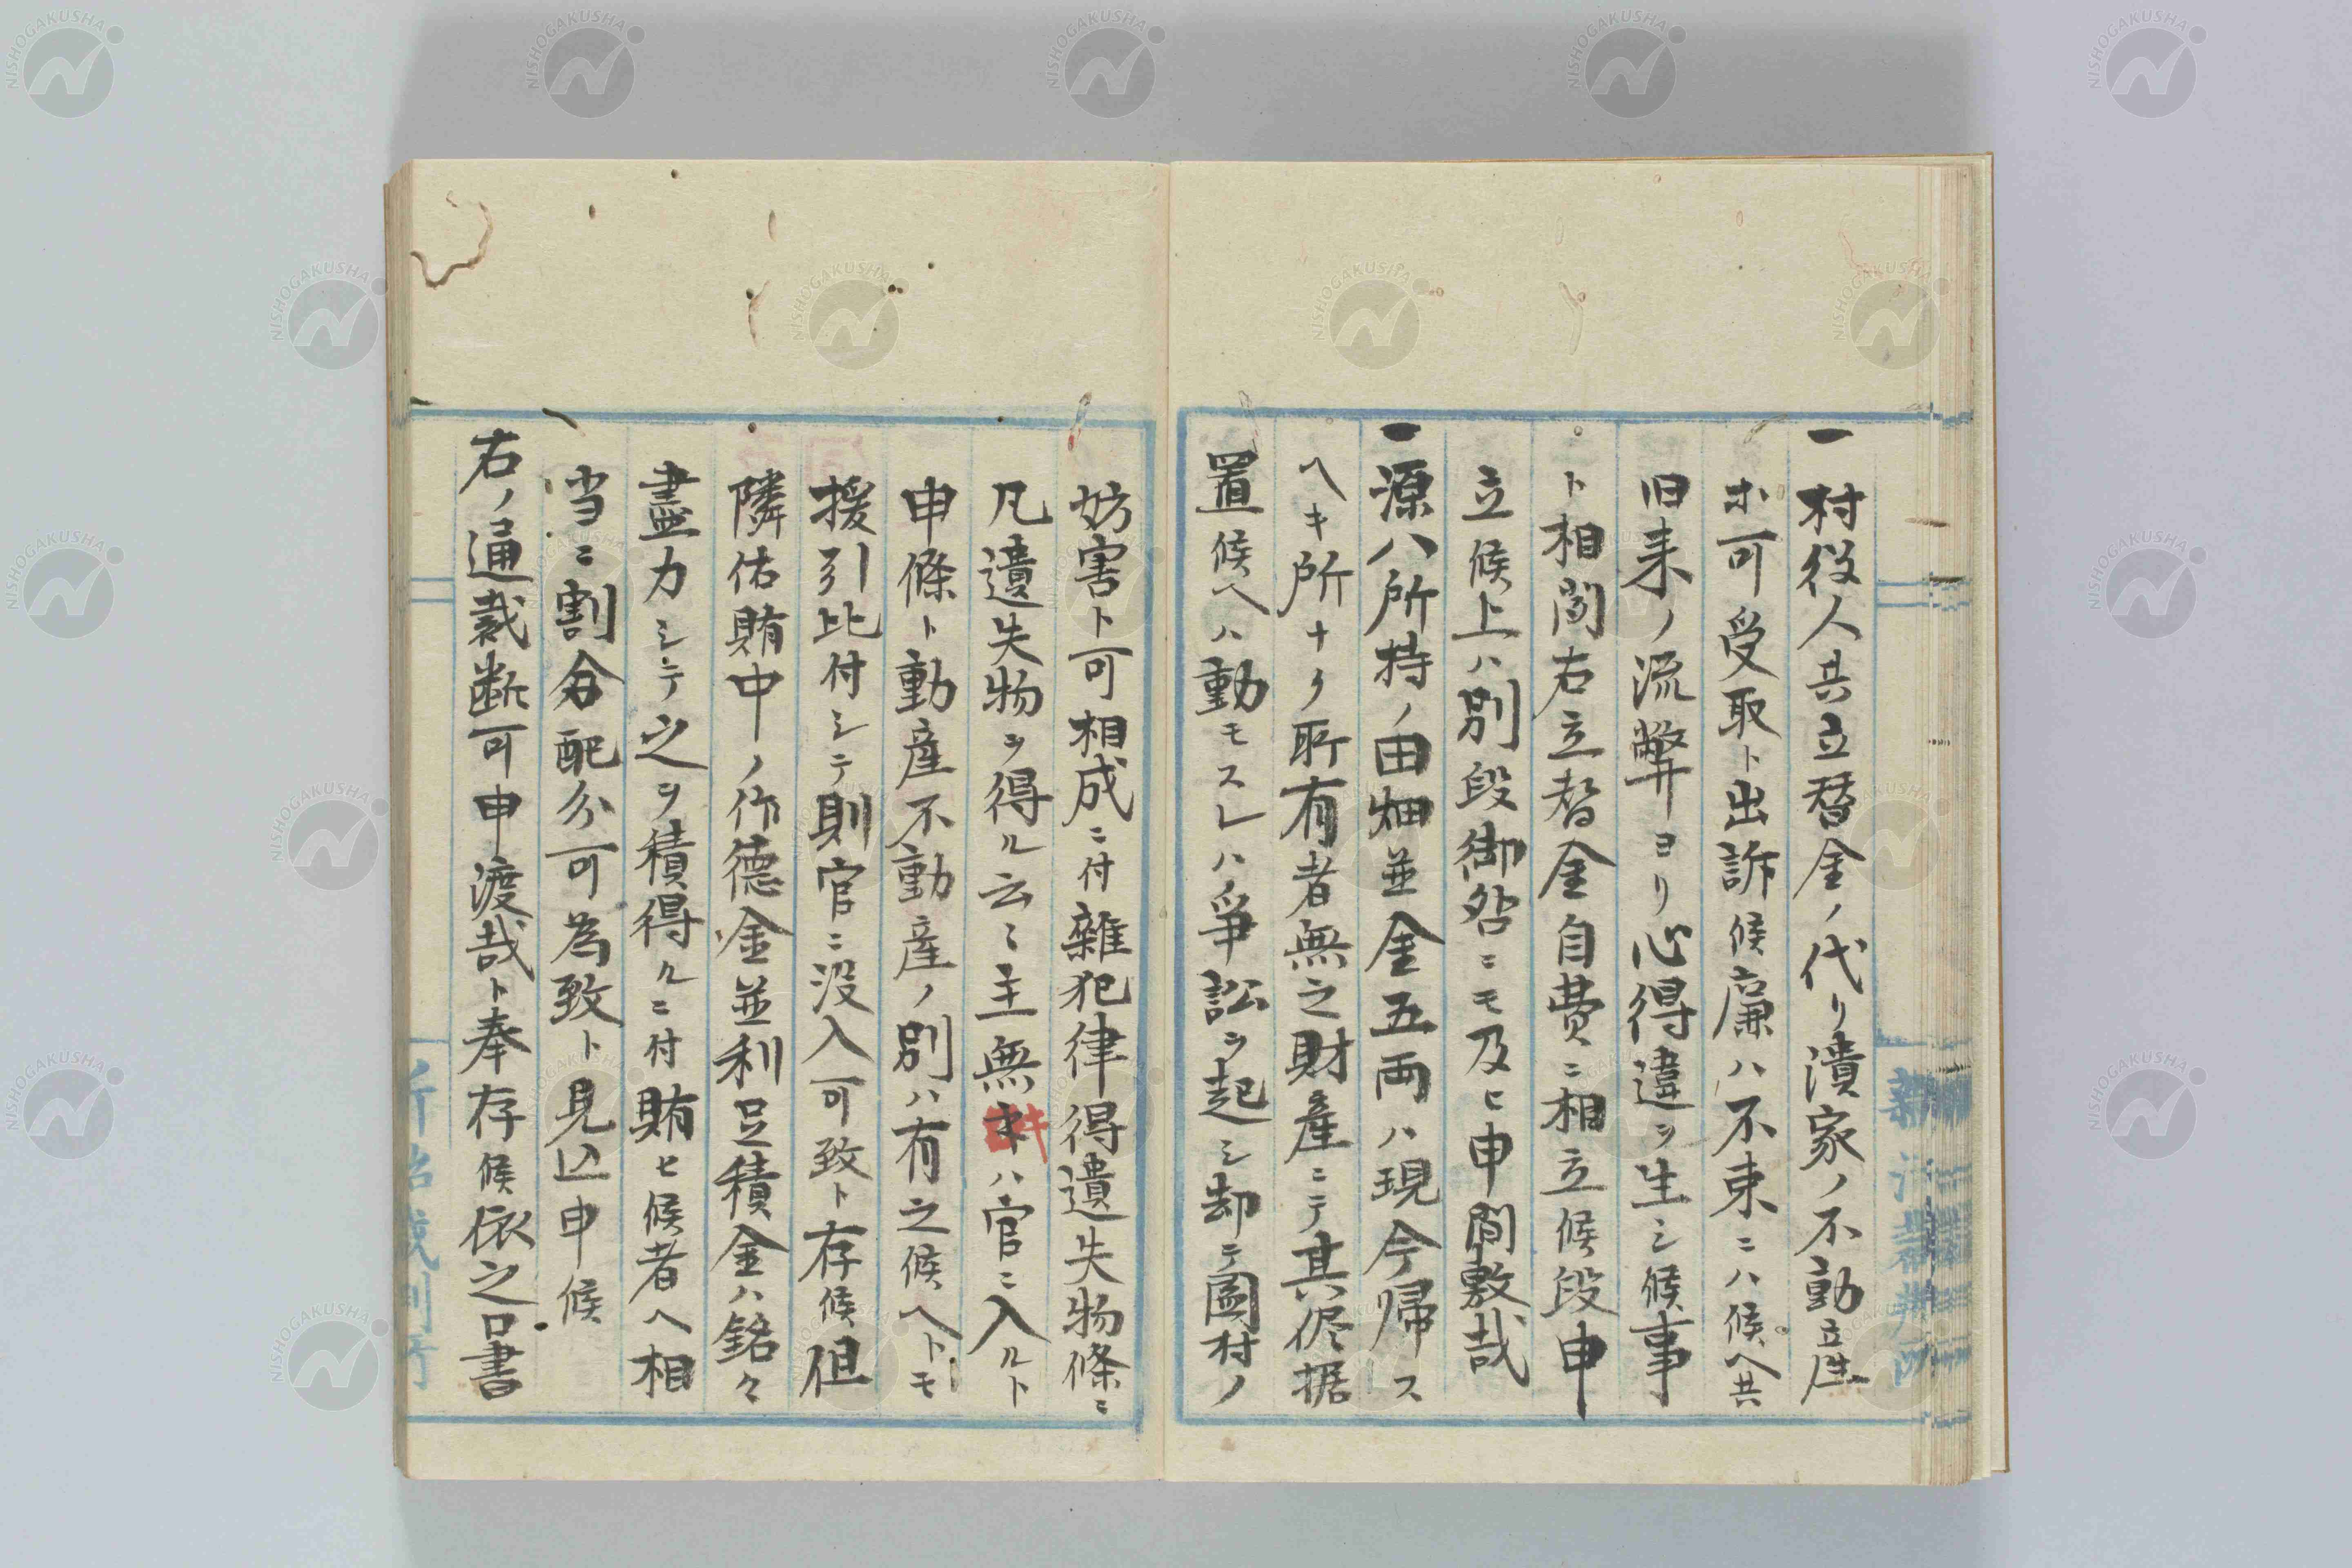 一村役人共立替金ノ代リ潰家ノ不動産
ホ可受取ト出訴候廉ハ不束ニハ候ヘ共
旧来ノ流弊ヨリ心得違ヲ生シ候事
ト相聞右立替金自費ニ相立候段申
立候上ハ別段御咎ニモ及ヒ申間敷哉
一源八所持ノ田畑並金五両ハ現今帰ス
ヘキ所ナク所有者無之財産ニテ其侭据
置候ヘハ動モスレハ爭訟ヲ起シ却テ圖村ノ
妨害ト可相成ニ付雜犯律得遺失物條ニ
凡遺失物ヲ得ル云々主無キハ官ニ入ルト
申條ト動産不動産ノ別ハ有之候ヘトモ
援引比付シテ則官ニ没入可致ト存候但
隣佑賄中ノ作德金並利足積金ハ銘々
盡力シテ之ヲ積得ルニ付賄ヒ候者ヘ相
当ニ割合配分可為致ト見込申候
右ノ通裁断可申渡哉ト奉存候依之口書
新治裁判所
NISHOGAKUSHA